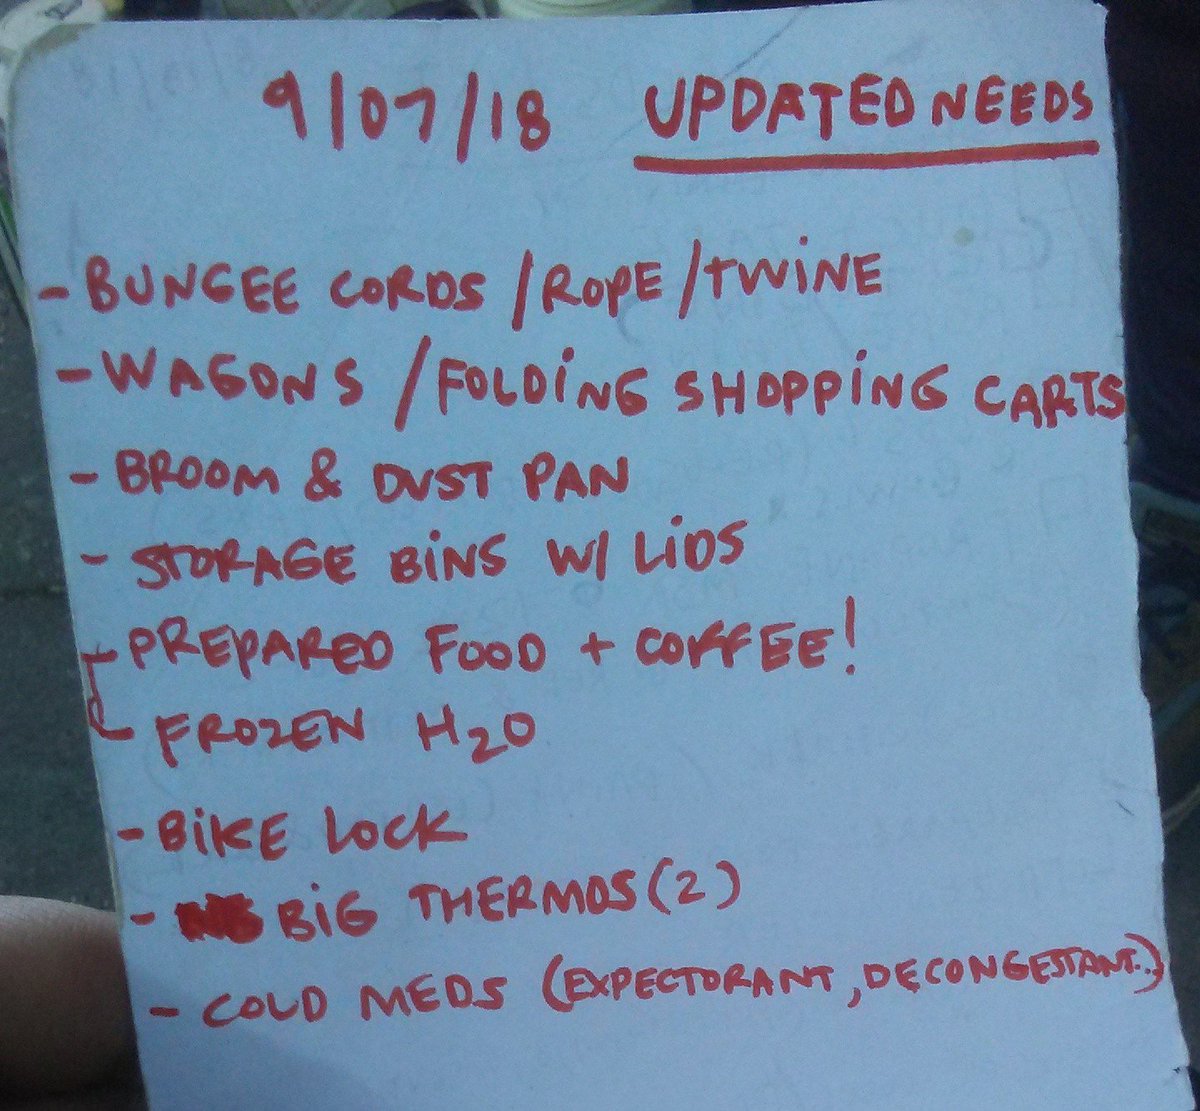 9/07/18 UPDATED NEEDS
- BUNGEE CORDS / ROPE / TWINE
- WAGONS / FOLDING SHOPPING CARTS
- BROOM & DUST PAN
- STORAGE BINS W/ LIDS
- PREPARED FOOD + COFFEE!
- FROZEN H2O
- BIKE LOCK
- BIG THERMOS (2)
- COLD MEDS (EXPECTORANT, DECONGESTANT..)